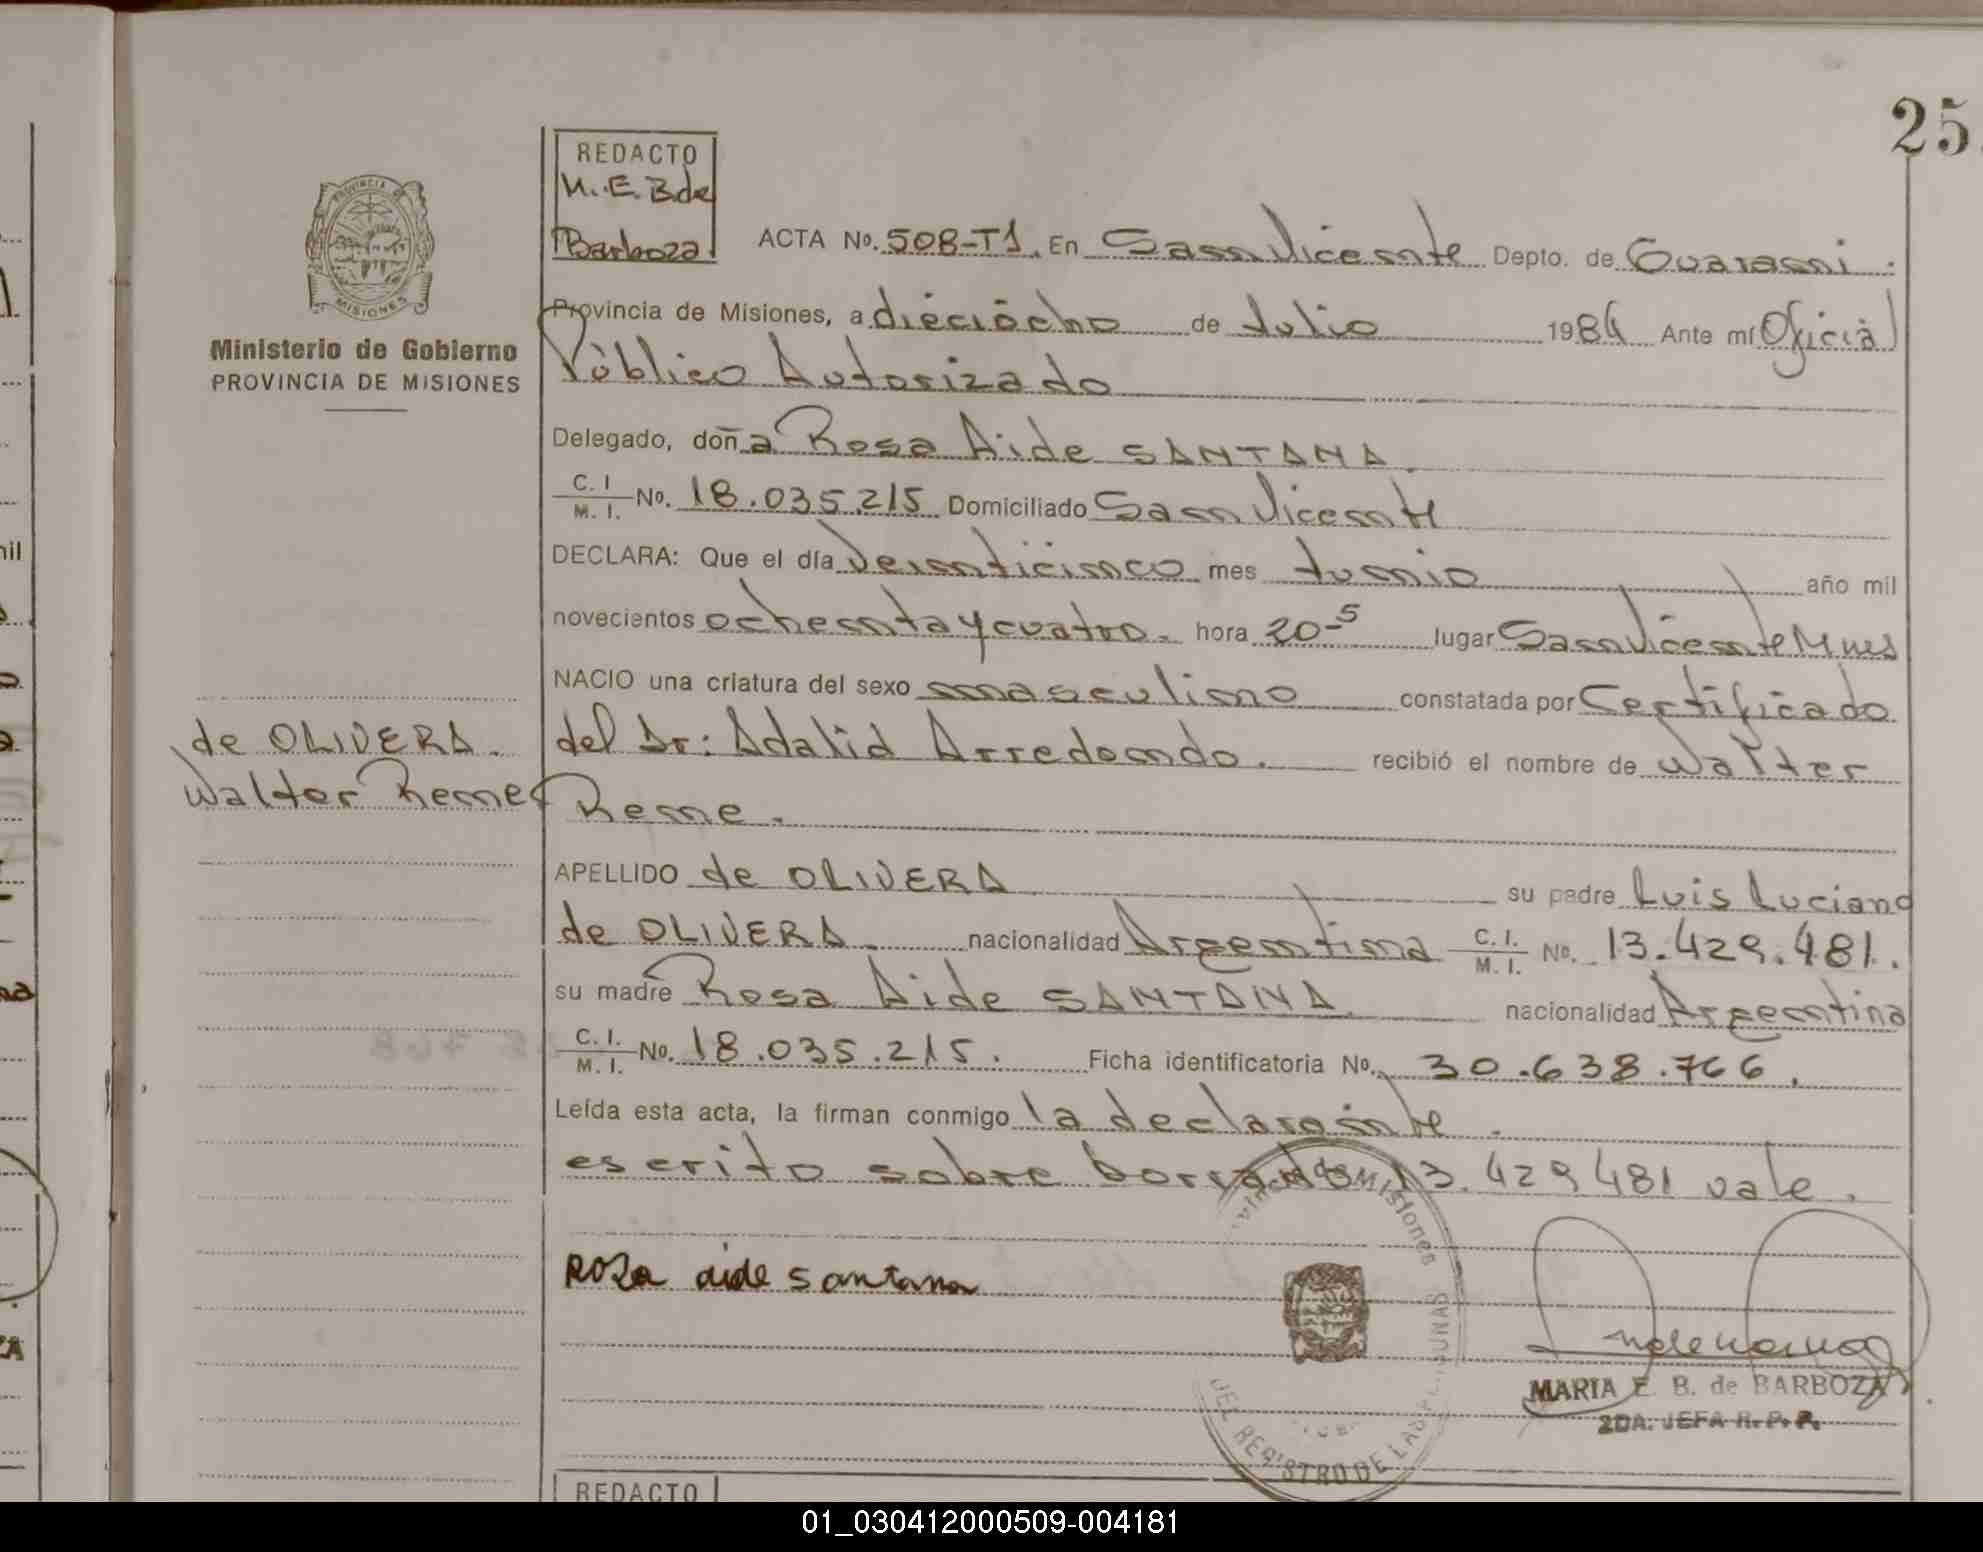 25
REDACTO
M.E.B de
Barboza
PROVINCIA DE
MISIONES
Ministerio de Gobierno
PROVINCIA DE MISIONES
ACTA No. 508-T1. En San Vicente Depto. de Guarani.
Provincia de Misiones, a dieciocho de Julio 1984 Ante mí Oficial
Público Autorizado
Delegado, doña Rosa Aide SANTANA.
C. I / M. I. No. 18.035.215 Domiciliado San Vicente
DECLARA: Que el día veinticinco mes Junio año mil
novecientos ochenta y cuatro. hora 20-5 lugar San Vicente Mnes
NACIO una criatura del sexo masculino constatada por Certificado
del Dr: Adalid Arredondo. recibió el nombre de Walter
Rene.
de OLIVERA.
Walter Rene
APELLIDO de OLIVERA su padre Luis Luciano
de OLIVERA nacionalidad Argentina C. I. / M. I. No. 13.429.481.
su madre Rosa Aide SANTANA nacionalidad Argentina
C. I. / M. I. No. 18.035.215. Ficha identificatoria No. 30.638.766.
Leída esta acta, la firman conmigo la declarante.
escrito sobre borrado 13.429.481 vale.
Roza aide santana
MARIA E. B. de BARBOZA
2DA. JEFA R. P. P.
MISIONES
DEL REGISTRO DE LAS PERSONAS
REDACTO
mil
01_030412000509-004181